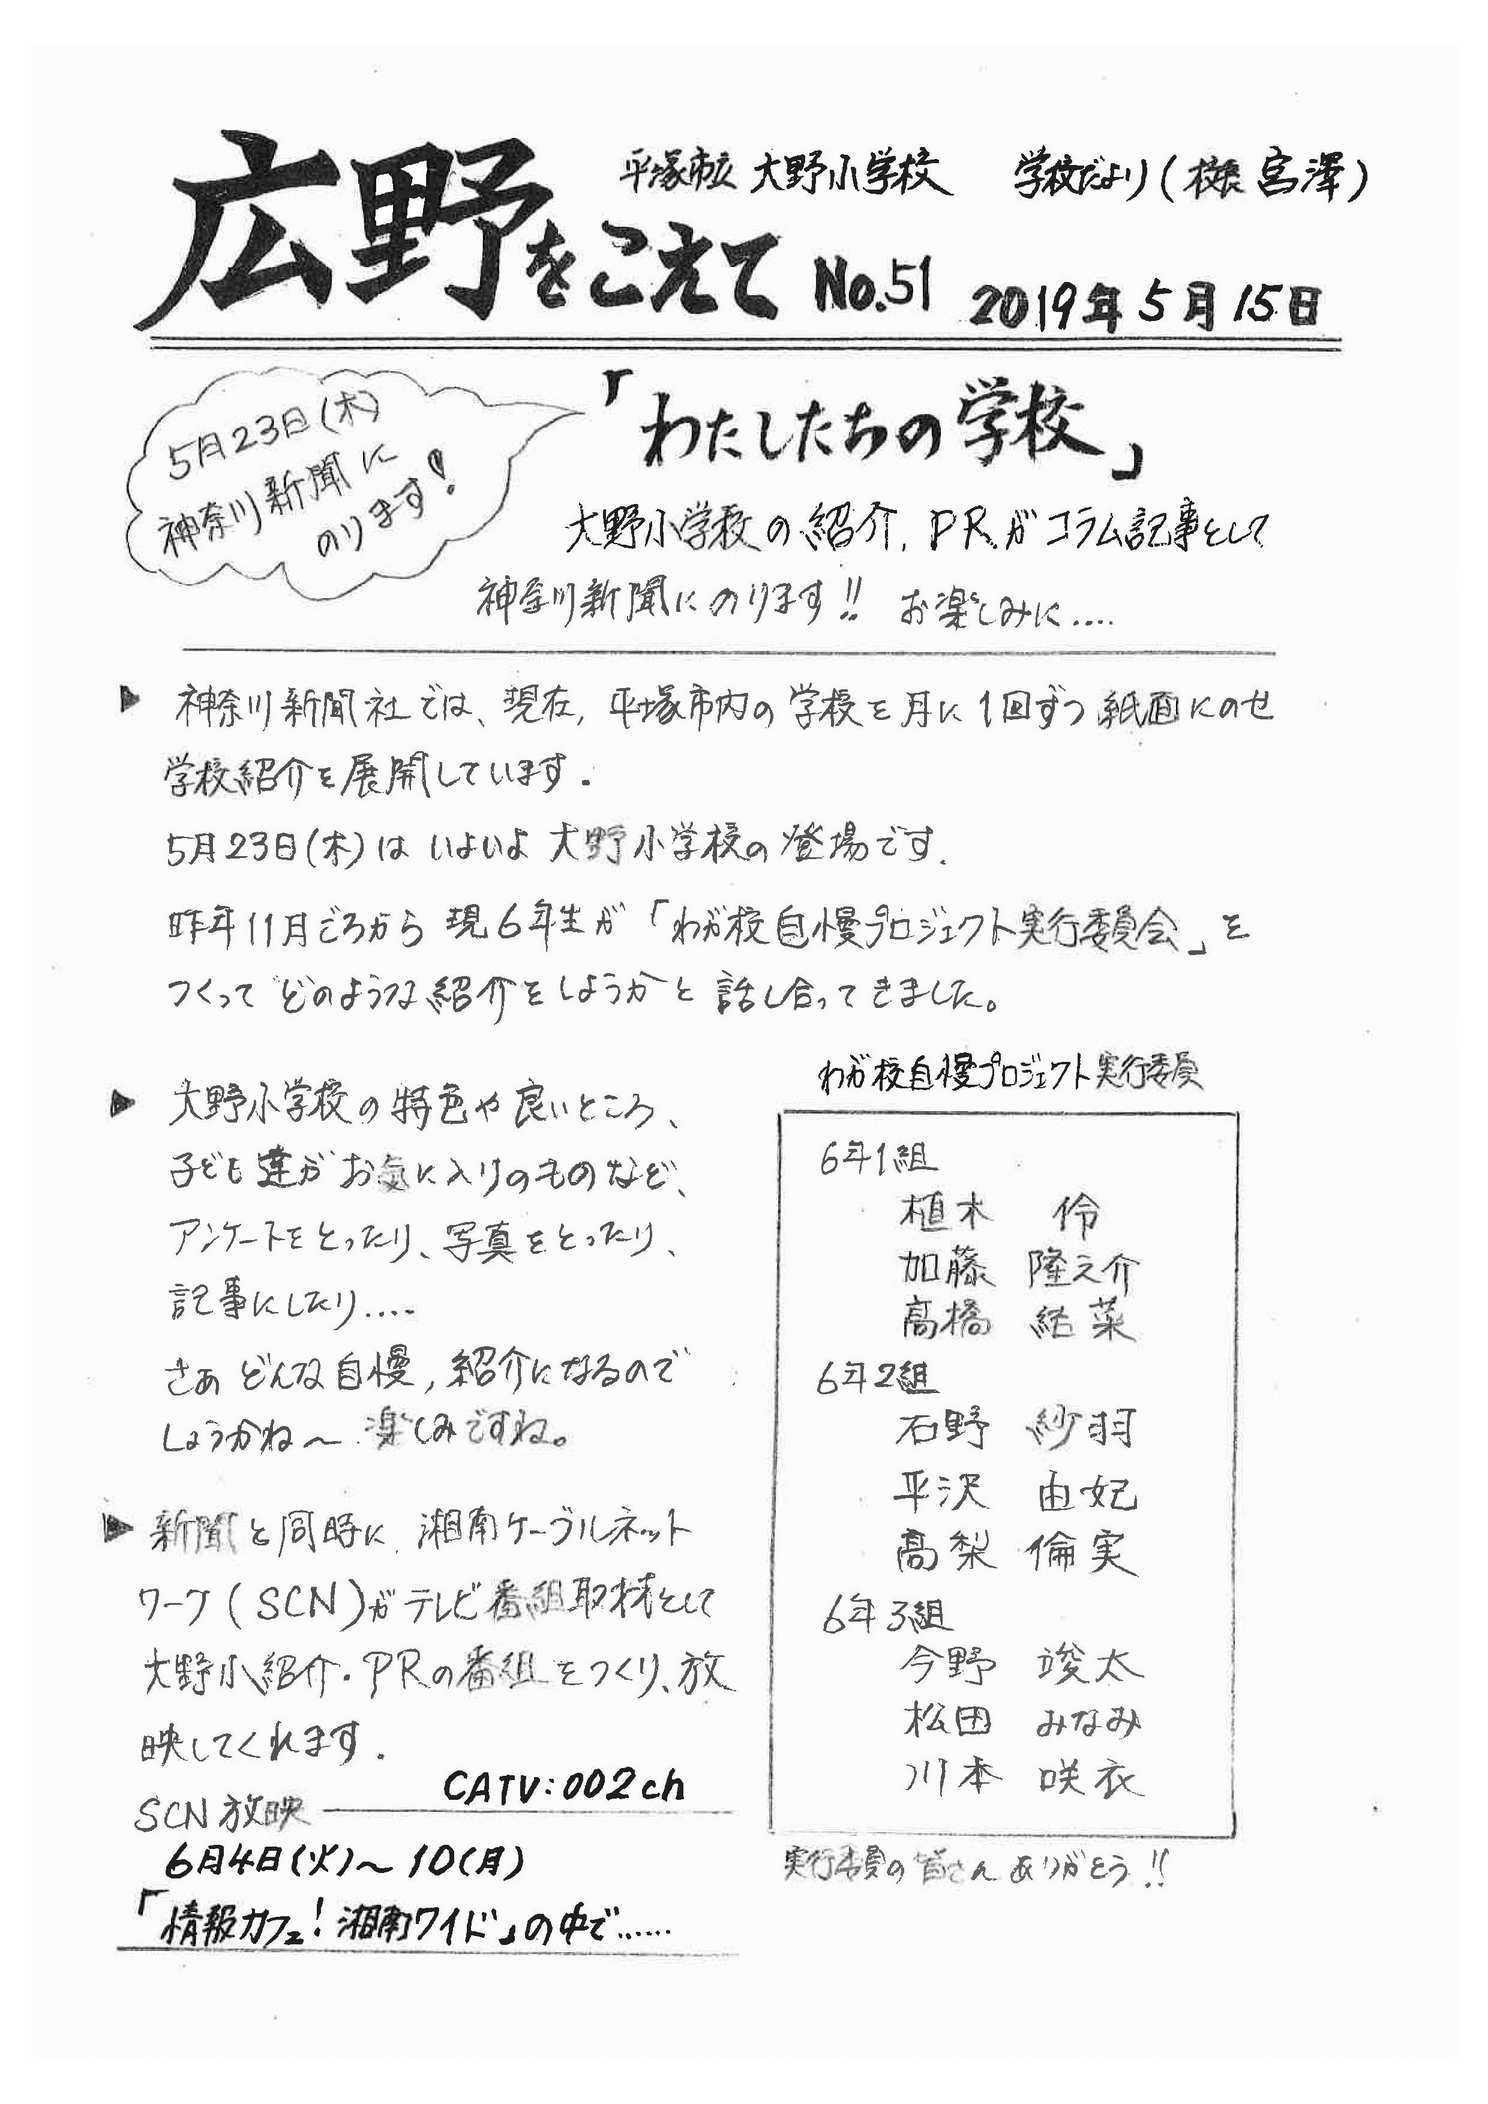 平塚市立 大野小学校 学校だより(校長 宮澤)
広野をこえて No.51 2019年5月15日
5月23日(木)
神奈川新聞に
のります!
「わたしたちの学校」
大野小学校の紹介,PRがコラム記事として
神奈川新聞にのります!! お楽しみに....
▶ 神奈川新聞社では、現在,平塚市内の学校を月に1回ずつ紙面にのせ
学校紹介を展開しています.
5月23日(木)はいよいよ大野小学校の登場です.
昨年11月ごろから現6年生が「わが校自慢プロジェクト実行委員会」を
つくってどのような紹介をしようかと話し合ってきました。
▶ 大野小学校の特色や良いところ、
子ども達がお気に入りのものなど、
アンケートをとったり、写真をとったり、
記事にしたり....
さぁどんな自慢,紹介になるので
しょうかね〜楽しみですね。
▶ 新聞と同時に,湘南ケーブルネット
ワーク(SCN)がテレビ番組取材として
大野小紹介・PRの番組をつくり、放
映してくれます.
SCN放映 CATV:002ch
6月4日(火)〜10(月)
「情報カフェ!湘南ワイド」の中で......
わが校自慢プロジェクト実行委員
6年1組
植木 伶
加藤 隆之介
高橋 結菜
6年2組
石野 紗羽
平沢 由妃
高梨 倫実
6年3組
今野 竣太
松田 みなみ
川本 咲衣
実行委員の皆さんありがとう!!